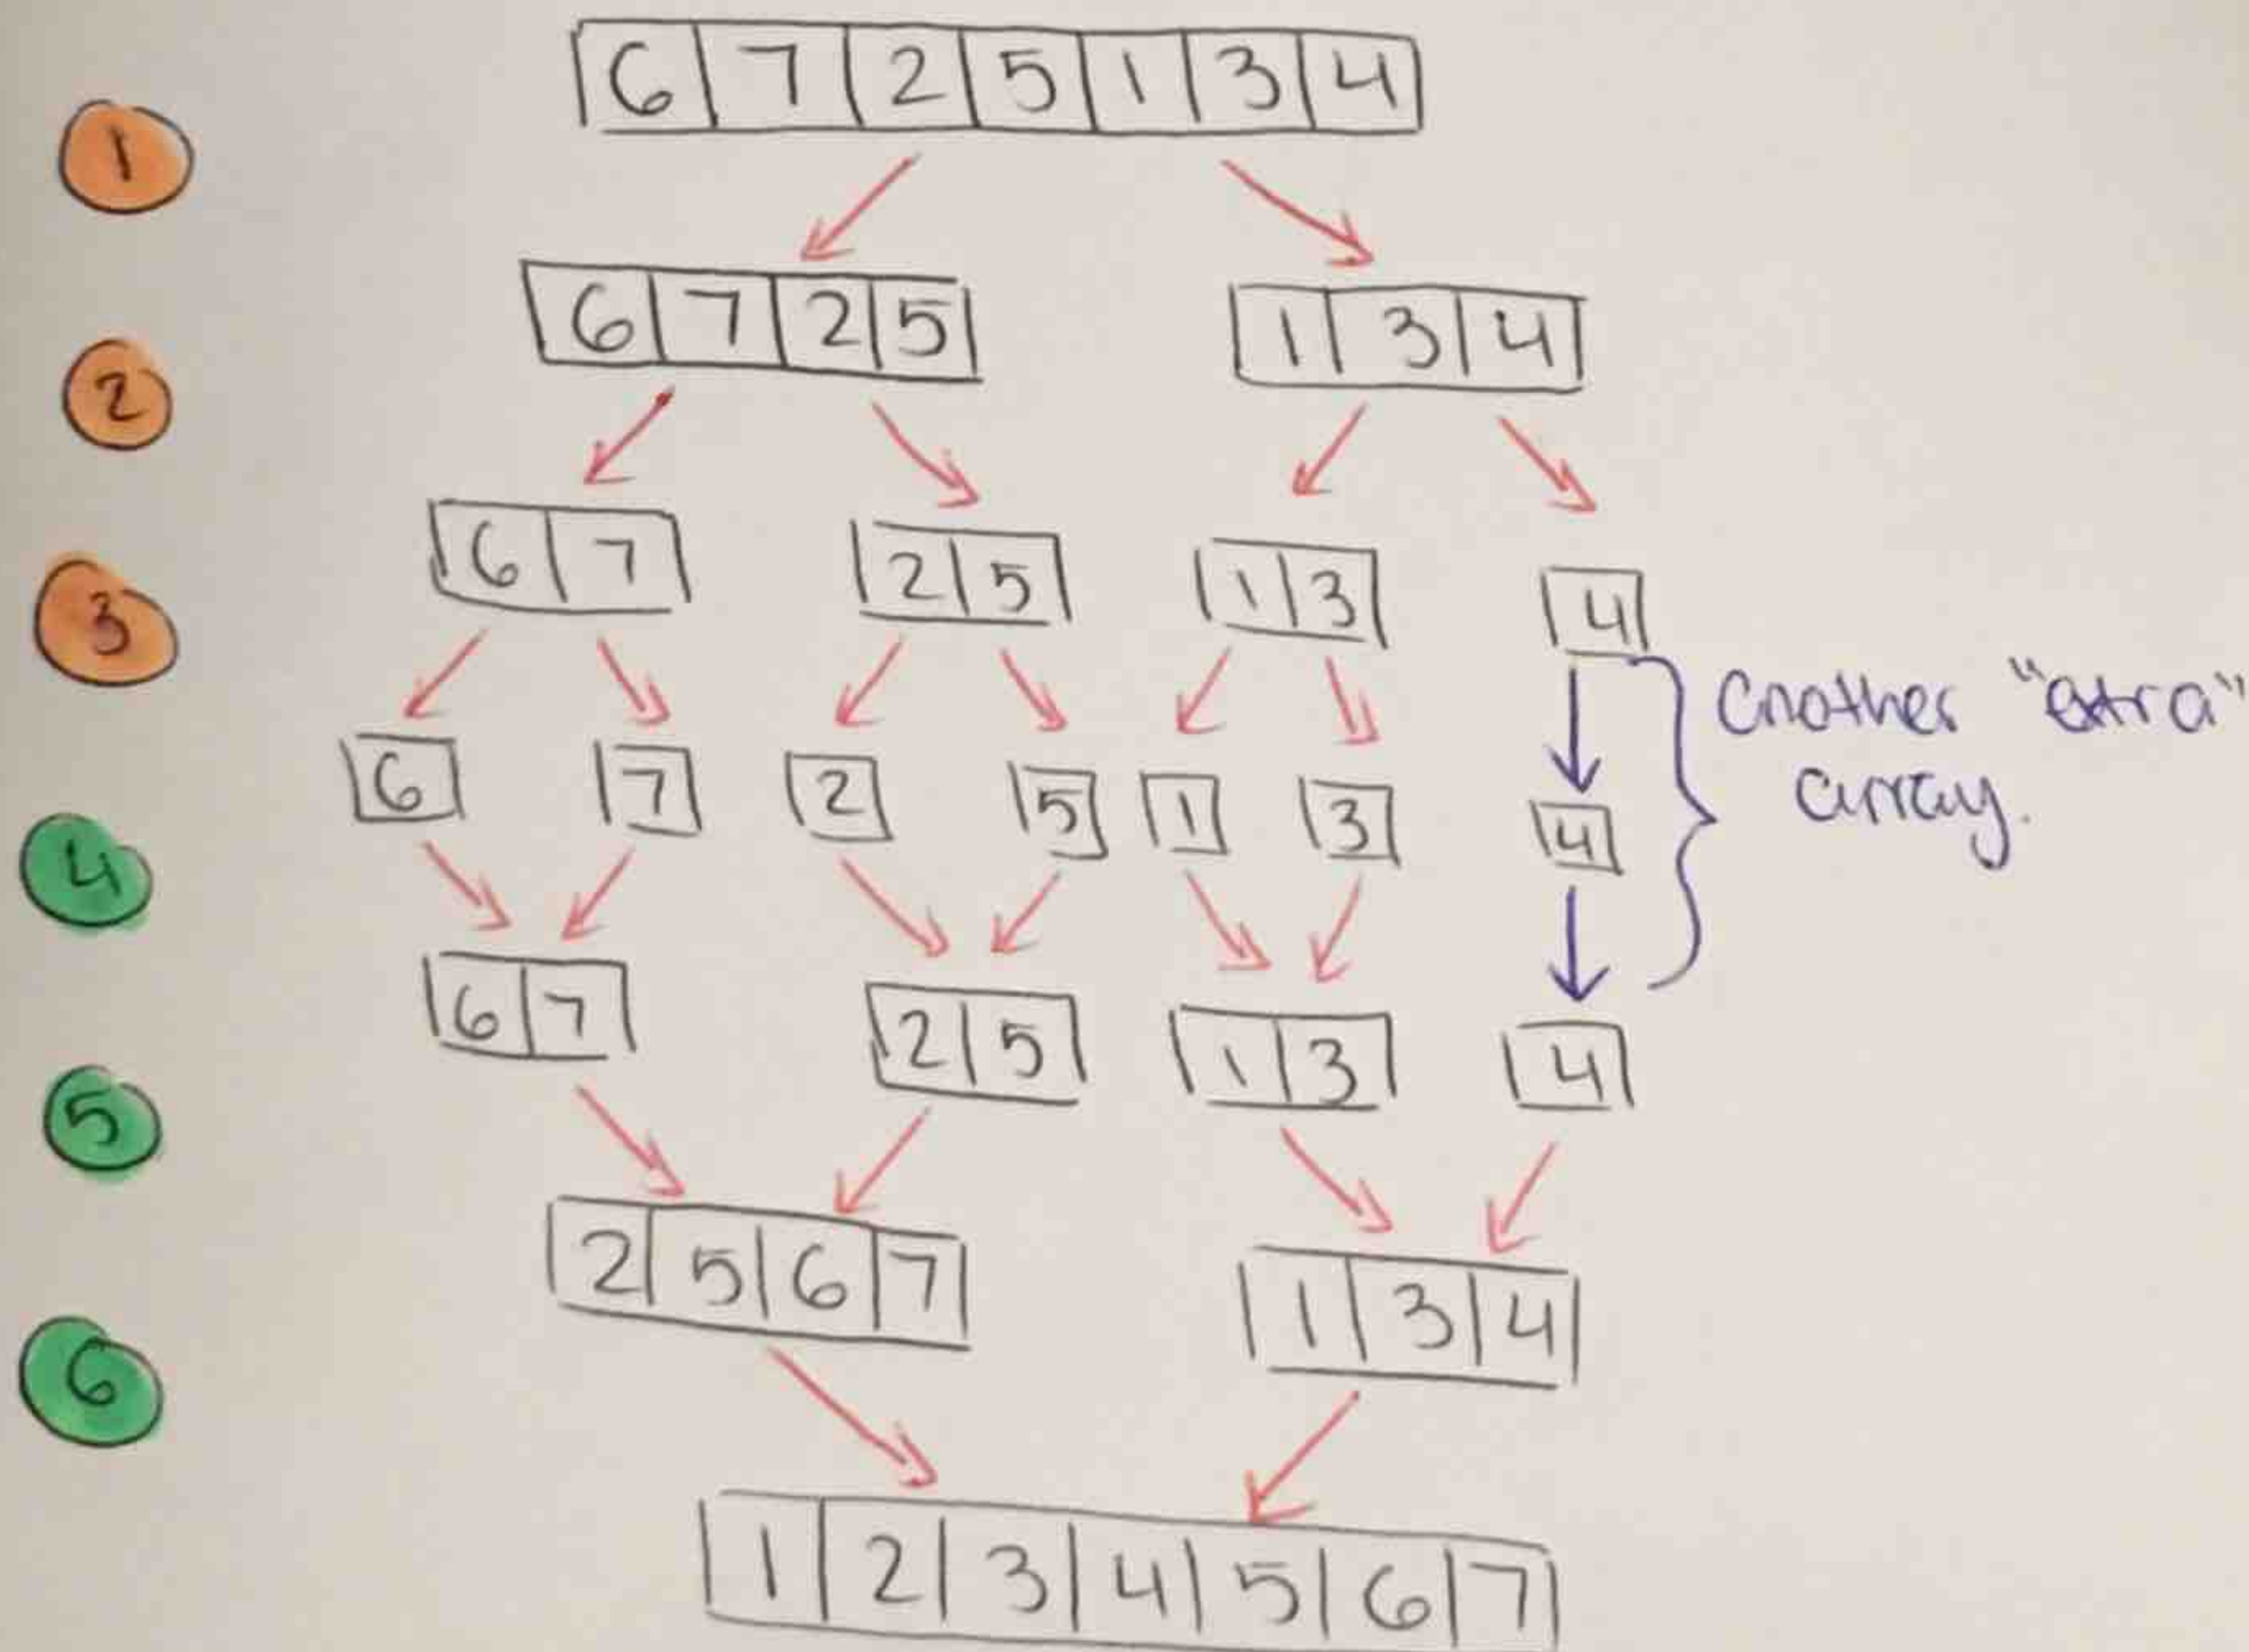 6 7 2 5 1 3 4
1
6 7 2 5 1 3 4
2
6 7 2 5 1 3 4
3
another "extra"
array.
6 7 2 5 1 3 4
4
6 7 2 5 1 3 4
5
2 5 6 7 1 3 4
6
1 2 3 4 5 6 7